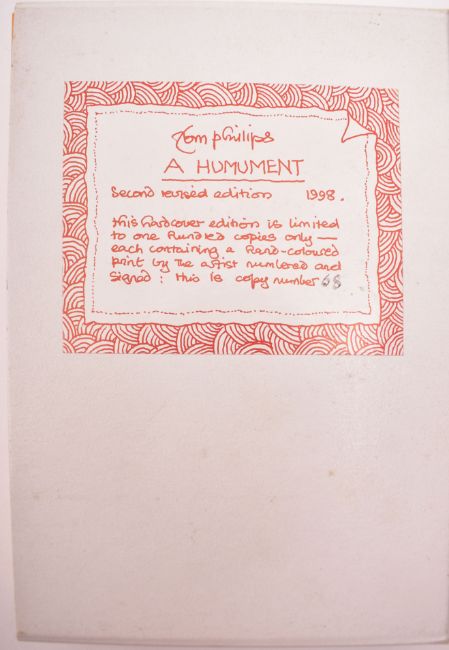 Tom Phillips
A HUMUMENT
Second revised edition 1998.
This hardcover edition is limited
to one hundred copies only —
each containing a hand-coloured
print by the artist numbered and
signed : this is copy number